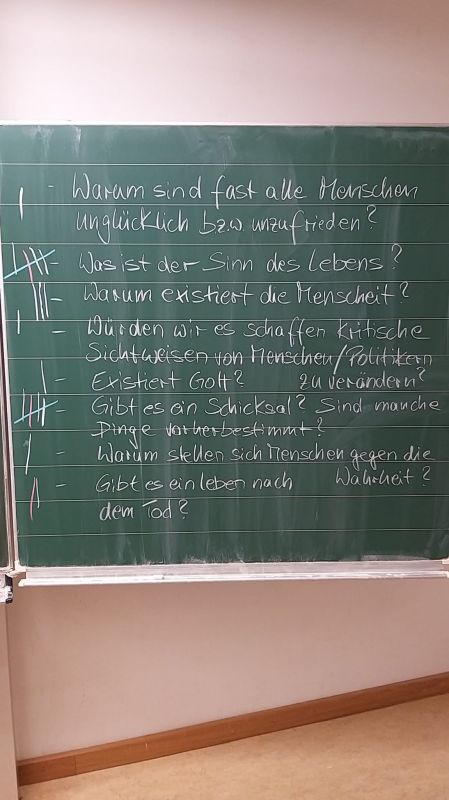 - Warum sind fast alle Menschen
unglücklich bzw. unzufrieden?
- Was ist der Sinn des Lebens?
- Warum existiert die Menscheit?
- Würden wir es schaffen kritische
Sichtweisen von Menschen/Politikern
zu verändern?
- Existiert Gott?
- Gibt es ein Schicksal? Sind manche
Dinge vorherbestimmt?
- Warum stellen sich Menschen gegen die
Wahrheit?
- Gibt es ein leben nach
dem Tod?